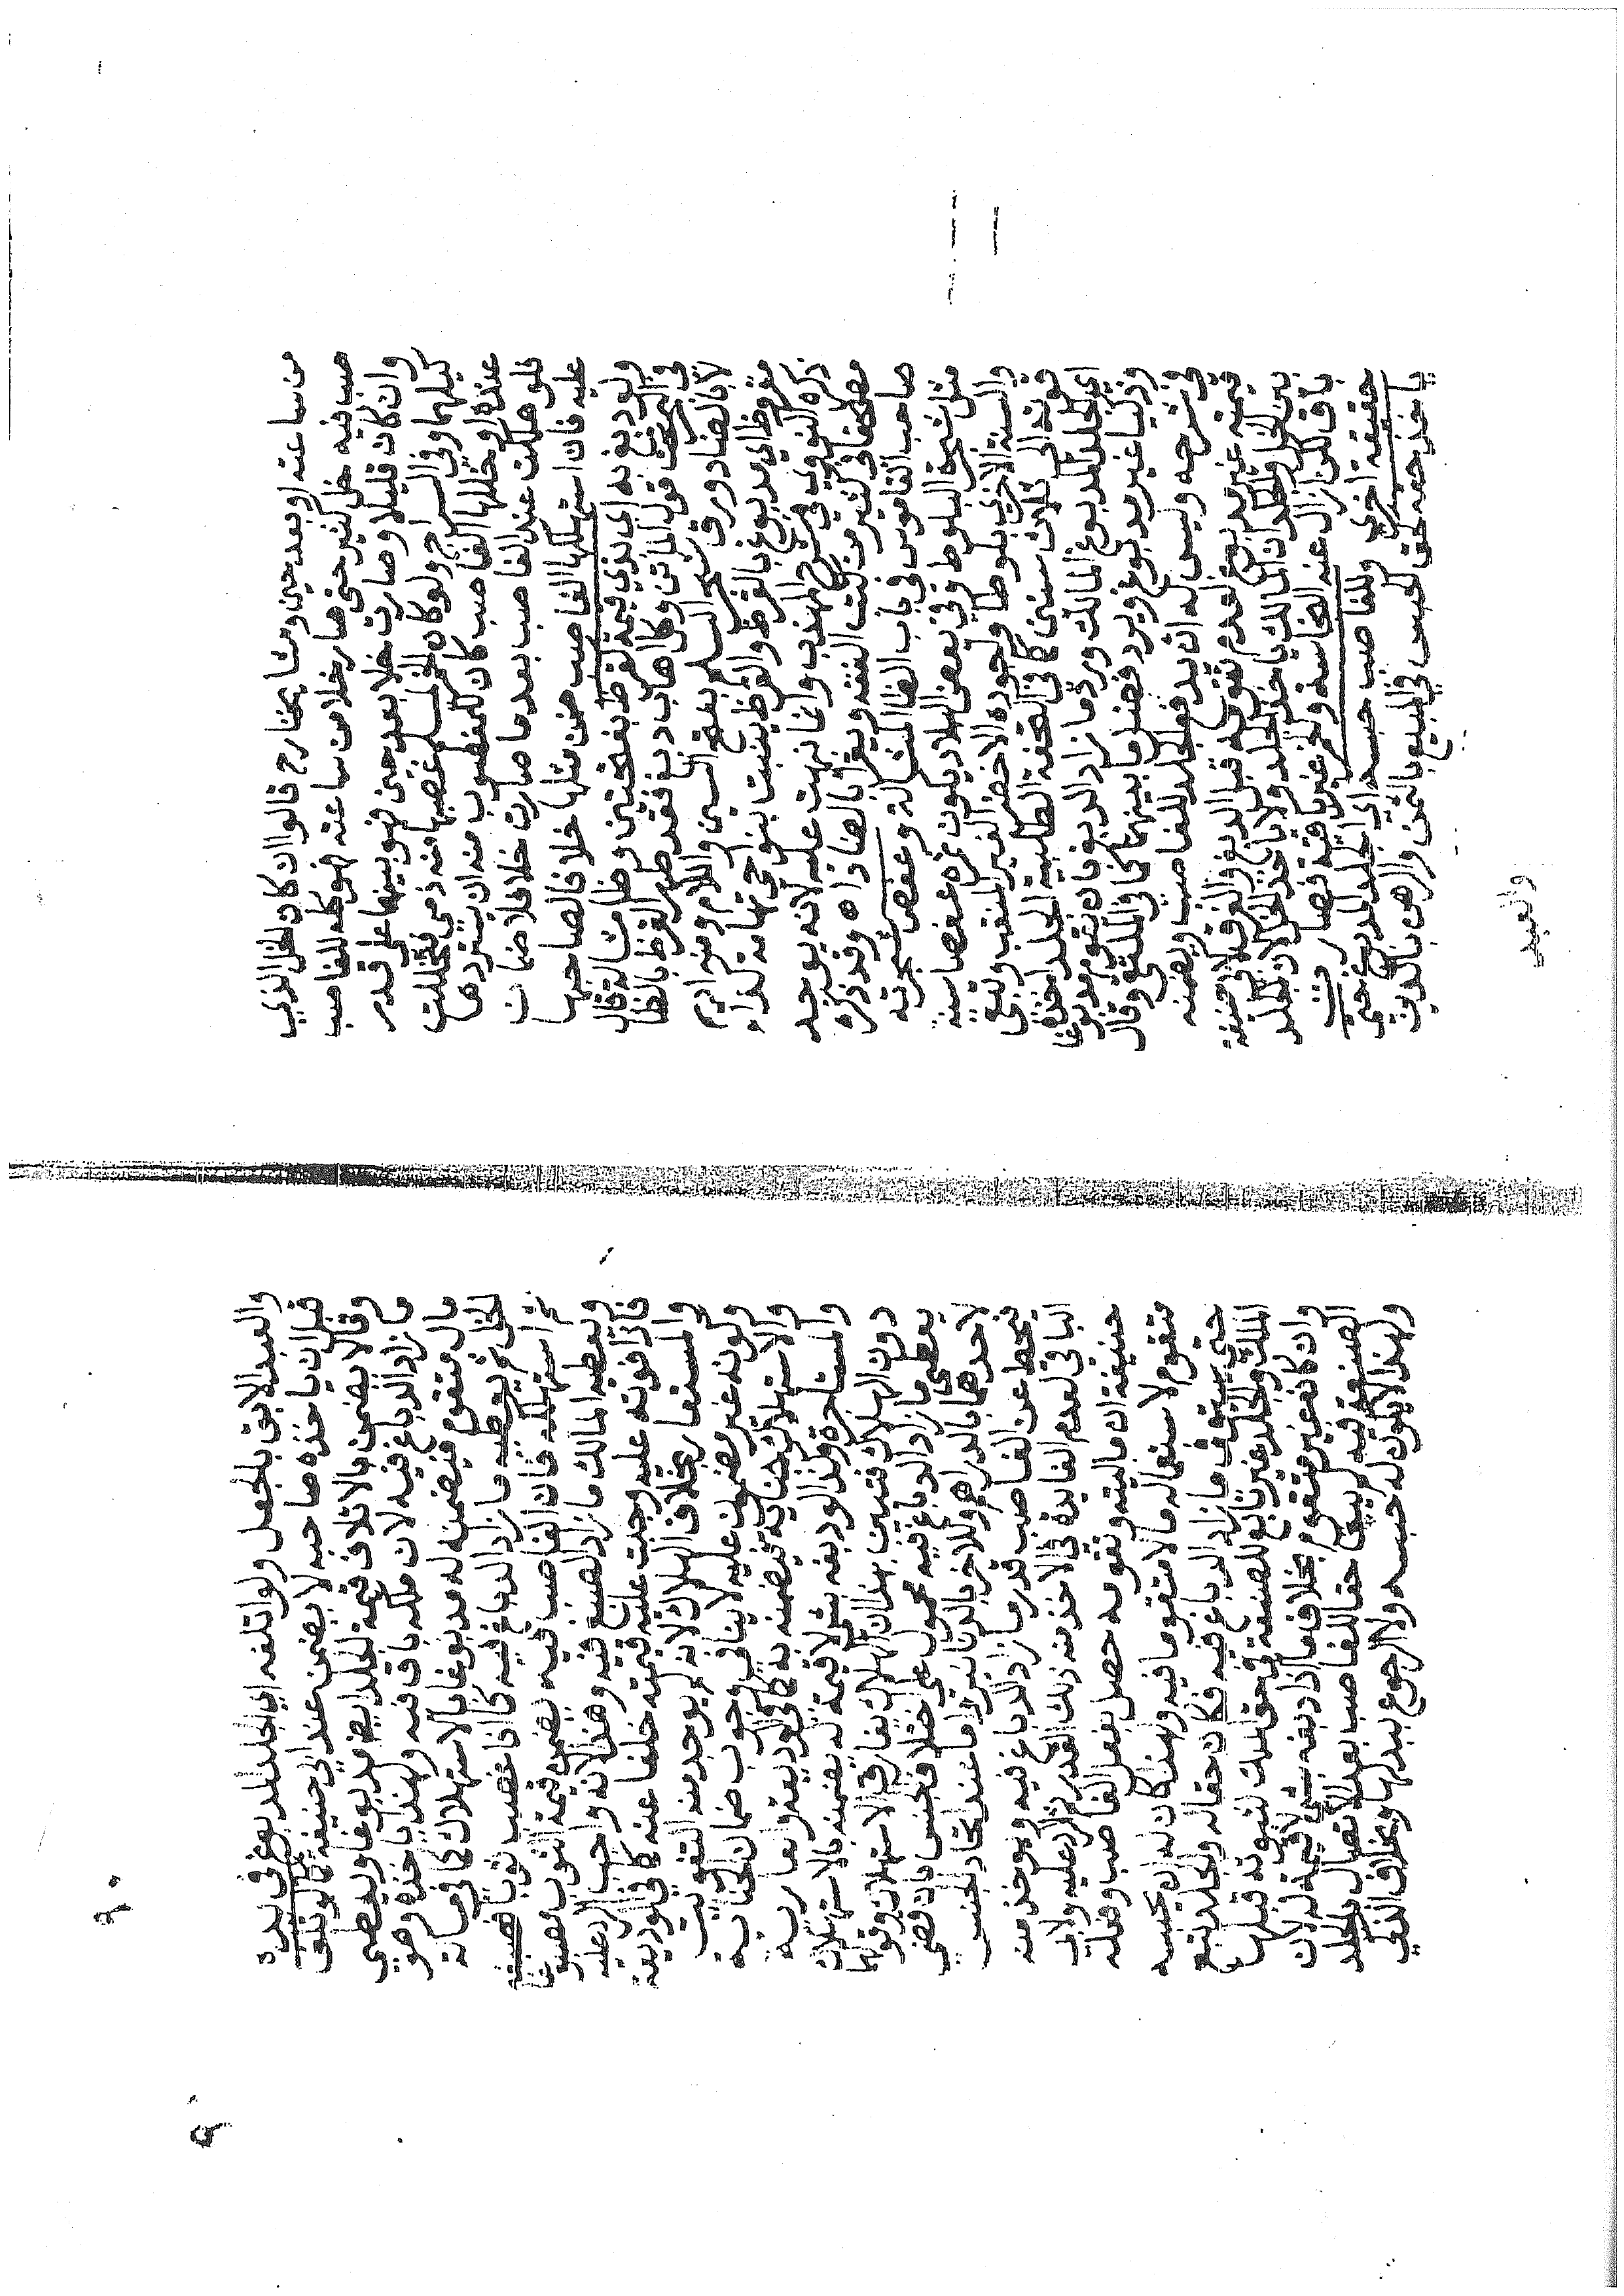 من ساعته او بعد حين ومشايخنا رح قالوا ان كان الخل الذي
صب فيه خل كثير حتى صار خلا من ساعته فهو كله للغاصب
وان كان قليلا وصارت خلا بعد حين فهو بينهما على قدر
كيلهما وفي السراج ولو كان الخمر لمسلم غصبها منه ذمي فتخللت
عنده او خللها الغاصب كان للمغصوب منه ان يستردها
فلو هلكت عند الغاصب بعد ما صارت خلا فلا ضمان
عليه فان استهلكها الغاصب ضمن مثلها خلا فالصاحبها
ولو دبغ به اي بذي قيمة كقرظ بفتحتين وظا مشالة قال
في البحر تحت قول الماتن وكل اهاب دبغ فقد طهر القرظ بالظا
لا بالضاد ورق شجر السلم بفتح السين واللام ومنه اديم
مقروظ اي مدبوغ بالقرظ والقرظ ينبت بنواحي تهامة كذا
ذكره النووي في شرح المهذب وانما نبهت عليه لانه يوجد
مصحفا في كثير من كتب الفقه ويقرا بالضاد اه وقد ذكره
صاحب القاموس في باب الظا المشالة وعفص شجرته
مثل شجرة البلوط وفي بعض البلاد يكون ثمره عفصا سنة
والسنة الاخرى بلوطا واجوده الاخضر الغير المثقب وتبقى
قوته الى ثلاث سنين كما في التحفة الطيبية الجلد اخذه
اي الجلد المدبوغ المالك ورد ما زاد الدبغ بان يقوم مدبوغا
وذكيا غير مدبوغ ويرد فضل ما بينهما كما في الملتقى وقال
في شرحه وليس له ان يدفع الجلد للغاصب ويضمنه
قيمته غير مدبوغ لعدم تقومه قبل الدبغ والفرق لابي حنيفة
بين الخل والجلد ان المالك ياخذ الجلد ولا ياخذ الخل لان الجلد
باق لكن ازال عنه النجاسة والخمر غير باقية بل صارت
حقيقة اخرى وللغاصب حبسه اي الجلد المدبوغ حتى
ياخذ حقه كحق الحبس في المبيع بالثمن والرهن بالدين
والعبد
والعبد الابق بالجعل ولو اتلفه اي الجلد المدبوغ في يده
قبل ان ياخذه صاحبه لا يضمن عند ابي حنيفة كما لو تلف
وقالا يضمن بالاتلاف قيمة الجلد مدبوغا ويعطي
ما زاد الدباغ فيه لان ملكه باق فيه ولهذا ياخذه وهو
مال متقوم فيضمنه له مدبوغا بالاستهلاك كما في مسالة
الخل ثم يعطيه ما زاد الدباغ فيه كما اذا غصب ثوبا فصبغه
ثم استهلكه فان الغاصب فيه يضمن قيمة الثوب مصبوغا
ويعطيه المالك ما زاد الصبغ فيه وهذا لانه واجب الرد عليه
فاذا فوته عليه وجبت عليه قيمته خلفا عنه كما في الوديعة
والمستعار بخلاف الهلاك لانه لم يوجد منه التفويت
وكونه غير مضمون عليه لا ينافي وجوب ضمان الجناية
والاستهلاك جناية فيضمنه به كما في الوديعة والعارية
والمستاجرة وكذا لو دبغه بشي لا قيمة له يضمنه بالاستهلاك
دون الهلاك فتبين بهذا ان الهلاك يفارق الاستهلاك وقولهما
يعطي ما زاد الدباغ فيه محمول على اختلاف الجنس بان قضى
لاحدهما بالدراهم وللاخر بالدنانير اما عند اتحاد الجنس
فيحط عن الغاصب قدر ما زاد الدباغ فيه ويوخذ منه
الباقي لعدم الفايدة في الاخذ منه ذلك القدر ثم الرد عليه ولابي
حنيفة ان ماليته وتقومه حصل بفعل الغاصب وفعله
متقوم لاستعماله مالا متقوما فيه ولهذا كان له ان يحبسه
حتى يستوفي ما زاد الدباغ فيه فكان حقا له والجلد تبع
الملك والجلد غير تابع للصنعة في حق الملك لثبوته قبلها
وان كان غير متقوم بخلاف ما اذا دبغه بشي لا قيمة له لان
الصنعة فيه لم تبق حقا للغاصب بعد الاتصال بالجلد
ولهذا لا يكون له حبسه ولا الرجوع ببدلها وبخلاف الذكي